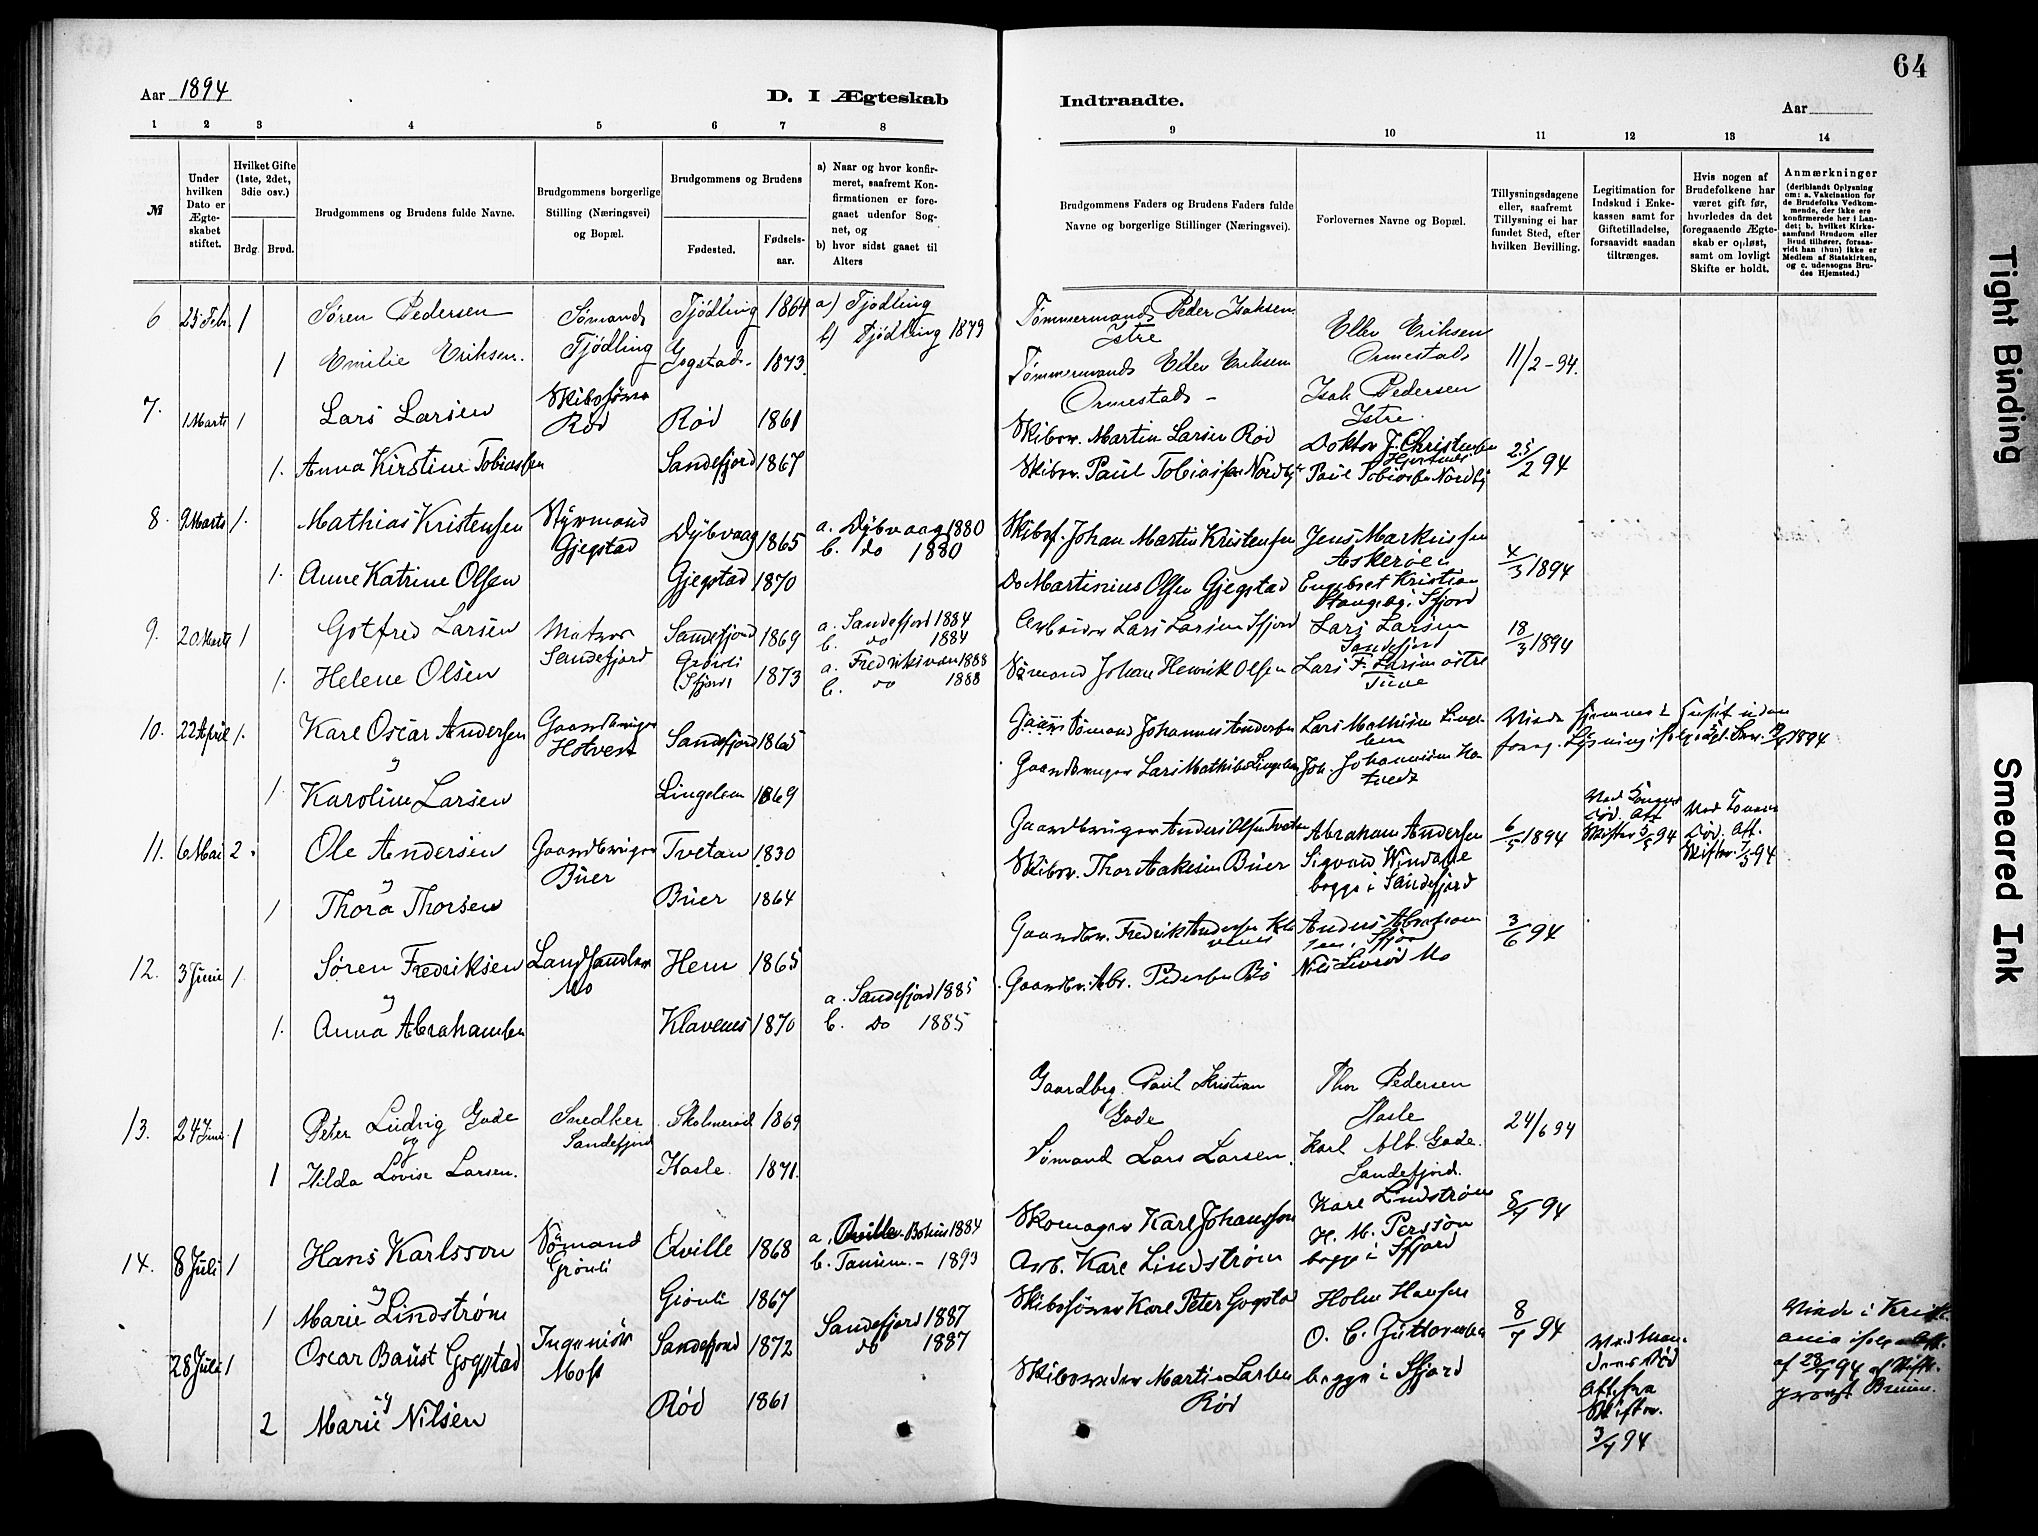 64
Aar 1894
D. I Ægteskab
Indtraadte.
Aar
1 2 3 4 5 6 7 8
9 10 11 12 13 14
№
Under hvilken Dato er Ægteskabet stiftet.
Hvilket Gifte (1ste, 2det, 3die osv.)
Brdg. Brud.
Brudgommens og Brudens fulde Navne.
Brudgommens borgerlige Stilling (Næringsvei) og Bopæl.
Brudgommens og Brudens
Fødested.
Fødselsaar.
a) Naar og hvor konfirmeret, saafremt Konfirmationen er foregaaet udenfor Sognet, og
b) hvor sidst gaaet til Alters
Brudgommens Faders og Brudens Faders fulde Navne og borgerlige Stillinger (Næringsvei).
Forlovernes Navne og Bopæl.
Tillysningsdagene eller, saafremt Tillysning ei har fundet Sted, efter hvilken Bevilling.
Legitimation for Indskud i Enkekassen samt for Giftetilladelse, forsaavidt saadan tiltrænges.
Hvis nogen af Brudefolkene har været gift før, hvorledes da det foregaaende Ægteskab er opløst, samt om lovligt Skifte er holdt.
Anmærkninger
(deriblandt Oplysning om: a. Vakcination for de Brudefolks Vedkommende, der ikke ere konfirmerede her i Landet; b. hvilket Kirkesamfund Brudgom eller Brud tilhører, forsaavidt han (hun) ikke er Medlem af Statskirken, og c. udensogns Brudes Hjemsted.)
6 25 Febr. 1 Søren Pedersen Sømand Tjødling Tjødling 1864 a) Tjødling b) Tjødling 1879 Tømmermand Peder Isaksen Istre Ellev Eriksen Ormestad 11/2-94.
1 Emilie Eriksen. Gogstad 1873. Tømmermand Ellev Eriksen Ormestad Isak Pedersen Istre.
7. 1 Marts 1 Lars Larsen Skibsfører Rød Rød 1861 Skibsr. Martin Larsen Rød Doktor J. Christensen 25/2 94
1. Anna Kirstine Tobiassen Sandefjord 1867 Skibsr. Paul Tobiassen Nordby Paul Tobiassen Nordby
8. 9 Marts 1. Mathias Kristensen Styrmand Gjegstad Dybvaag 1865 a. Dybvaag 1880 b. do 1880 Skibsf. Johan Martin Kristensen Jens Markussen Askerøen 4/3 1894
1. Anne Katrine Olsen Gjegstad 1870 Do Martinius Olsen Gjegstad Engebret Kristian Stangeby i Sfjord
9. 20 Marts 1 Gotfred Larsen Matros Sandefjord Sandefjord 1869 a. Sandefjord 1884 b. do 1884 Arbeider Lars Larsen Sfjord Lars Larsen Sandefjord 18/3 1894
1. Helene Olsen Grønli (Sfjord) 1873 a. Fredriksværn 1888 b. do 1888 Sømand Johan Henrik Olsen Lars F. Larsen østre
10. 22 April 1. Karl Oscar Andersen Gaardbruger Hotvedt Sandefjord 1865 Sømand Johannes Andersen Lars Mathisen
og
1 Karoline Larsen Lingelem 1869 Gaardbruger Lars Mathisen Lingelem Joh. Johannesen
11. 6 Mai 2 Ole Andersen Gaardbruger Buer Tvetan 1830 Gaardbruger Anders Olsen Tvetan Abraham Andersen 6/5 1894
og
1 Thora Thorsen Buer 1864 Skibsr. Thor Aakesen Buer Sigvard Windahl begge i Sandefjord
12. 3 Juni 1. Søren Fredriksen Landhandler Mo Hem 1865 Gaardbr. Fredrik Andersen Anders Abrahamsen, Sfjor 3/6 94
og
1. Anna Abrahamsen Klavenes 1870 a. Sandefjord 1885 b. Do 1885 Gaardbr. Abr. Pedersen Bø Nils Liverød Mo
13. 24 Juni 1 Peter Ludvig Gade Snedker Sandefjord Skolmerød 1869 Gaardbrg. Paul Kristian Gade Thor Pedersen Hasle 24/6 94
og
1 Hilda Lovise Larsen. Hasle 1871. Sømand Lars Larsen. Karl Alb. Gade. Sandefjord.
14. 8 Juli 1 Hans Karlsson Sømand Grønli Qville 1868 a. Qville. Bohus 1884 b. Tanum. - 1893 Skomager Karl Johansson Karl Lindstrøm 8/7 94
og
1 Marie Lindstrøm Grønli 1867 Arb. Karl Lindstrøm H. M. Persson begge i Sfjord
28 Juli 1 Oscar Baust Gogstad Ingeniør Moss Sandefjord 1872 Sandefjord 1887 do 1887 Skibsfører Karl Peter Gogstad Holm Hansen 8/7 94
og
2 Marie Nilsen Rød 1861 Skibsreder Martin Larsen Rød O. C. begge i Sfjord
Tight Binding
Smeared Ink